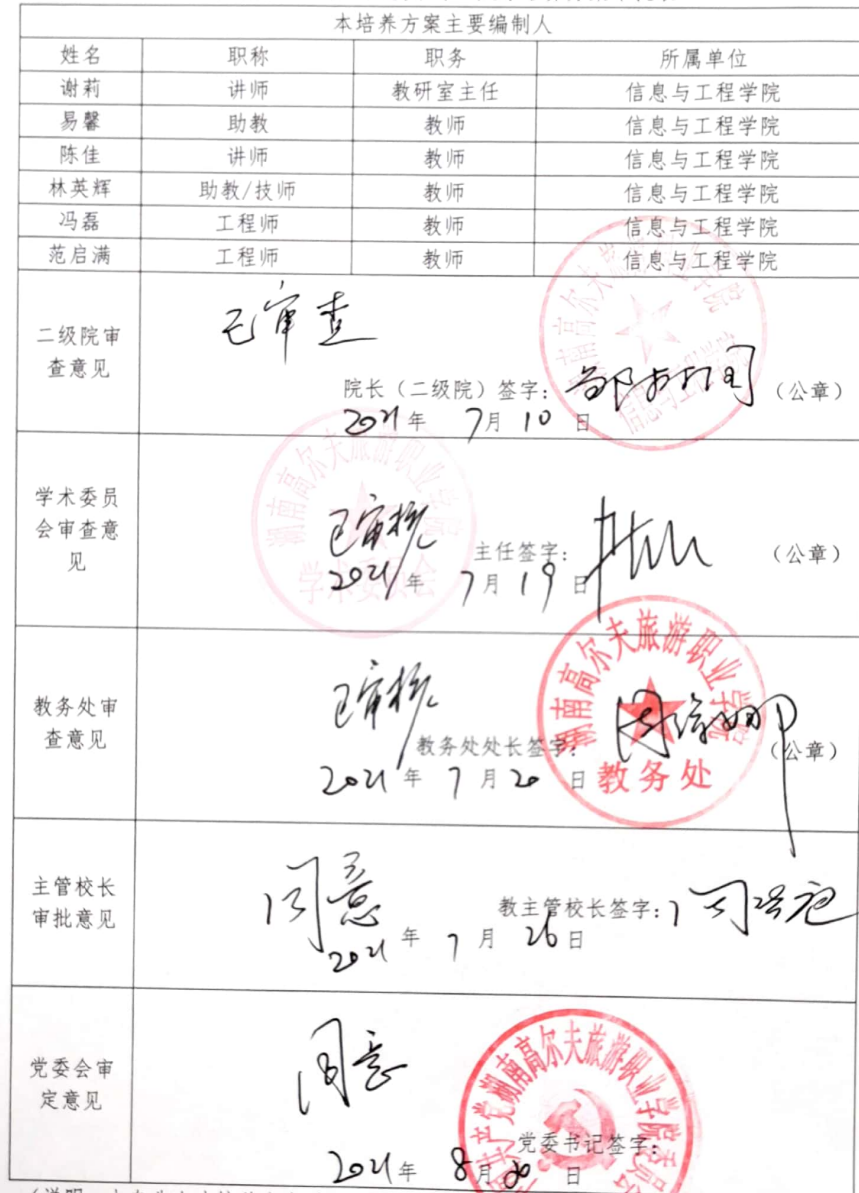 本培养方案主要编制人
姓名 职称 职务 所属单位
谢莉 讲师 教研室主任 信息与工程学院
易馨 助教 教师 信息与工程学院
陈佳 讲师 教师 信息与工程学院
林英辉 助教/技师 教师 信息与工程学院
冯磊 工程师 教师 信息与工程学院
范启满 工程师 教师 信息与工程学院
二级院审查意见
已审查
院长（二级院）签字： （公章）
2021年 7月 10日
湖南高尔夫旅游职业学院
学术委员会审查意见
已审核
主任签字： （公章）
2021年 7月 19日
湖南高尔夫旅游职业学院
学术委员会
教务处审查意见
已审核
教务处处长签字： （公章）
2021年 7月 20日
湖南高尔夫旅游职业学院
教务处
主管校长审批意见
同意
教主管校长签字：
2021年 7月 26日
党委会审定意见
同意
党委书记签字：
2021年 8月 日
湖南高尔夫旅游职业学院